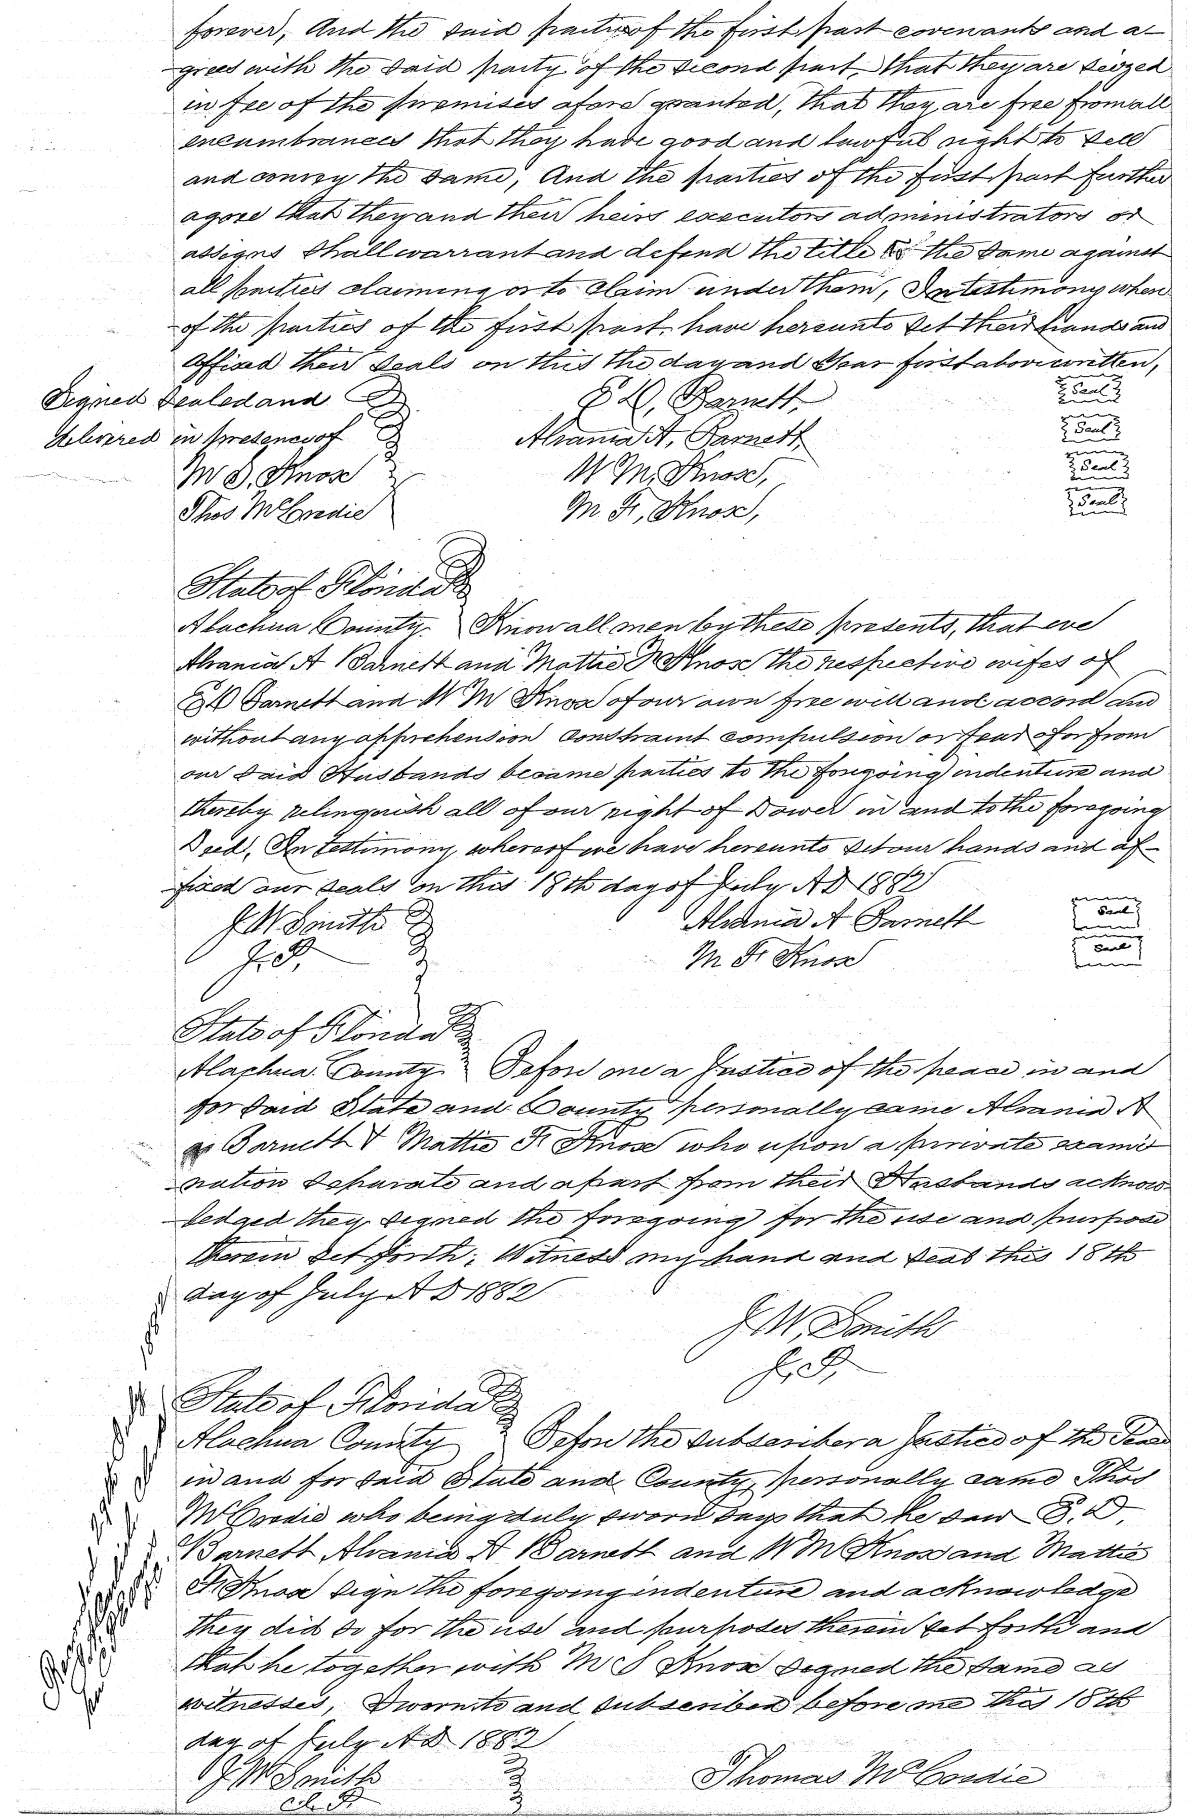 forever, And the said parties of the first part covenants and a-
grees with the said party of the second part, that they are seized
in fee of the premises afore granted, that they are free from all
encumbrances that they have good and lawful right to sell
and convey the same, And the parties of the first part further
agree that they and their heirs executors administrators or
assigns shall warrant and defend the title to the same against
all parties claiming or to claim under them, In testimony where
of the parties of the first part have hereunto set their hands and
affixed their seals on this the day and year first above written,
Signed Sealed and E D, Barnett, Seal
delivered in presence of Alvania A, Barnett, Seal
M S, Knox W M, Knox, Seal
Thos McCredie M F, Knox, Seal
State of Florida
Alachua County. Know all men by these presents, that we
Alvania A Barnett and Mattie F Knox the respective wifes of
E D Barnett and W M Knox of our own free will and accord and
without any apprehension constraint compulsion or fear of or from
our said Husbands became parties to the foregoing indenture and
thereby relinquish all of our right of Dower in and to the foregoing
Deed, In testimony whereof we have hereunto set our hands and af-
fixed our seals on this 18th day of July AD 1882
J W Smith Alvania A Barnett Seal
J. P. M F Knox Seal
State of Florida
Alachua County Before me a Justice of the peace in and
for said State and County personally came Alvania A
Barnett & Mattie F Knox who upon a private exami
nation separate and apart from their Husbands acknow-
ledged they signed the foregoing for the use and purpose
therein set forth; Witness my hand and seal this 18th
day of July A D 1882
J. W, Smith
J. P,
State of Florida
Alachua County Before the subscriber a Justice of the Peace
in and for said State and County, personally came Thos
McCredie who being duly sworn says that he saw E. D,
Barnett, Alvania A Barnett and W M Knox and Mattie
F. Knox sign the foregoing indenture and acknowledge
they did so for the use and purposes therein set forth and
that he together with M S Knox signed the same as
witnesses, Sworn to and subscribed before me this 18th
day of July A D 1882
J. W Smith Thomas McCredie
J. P.